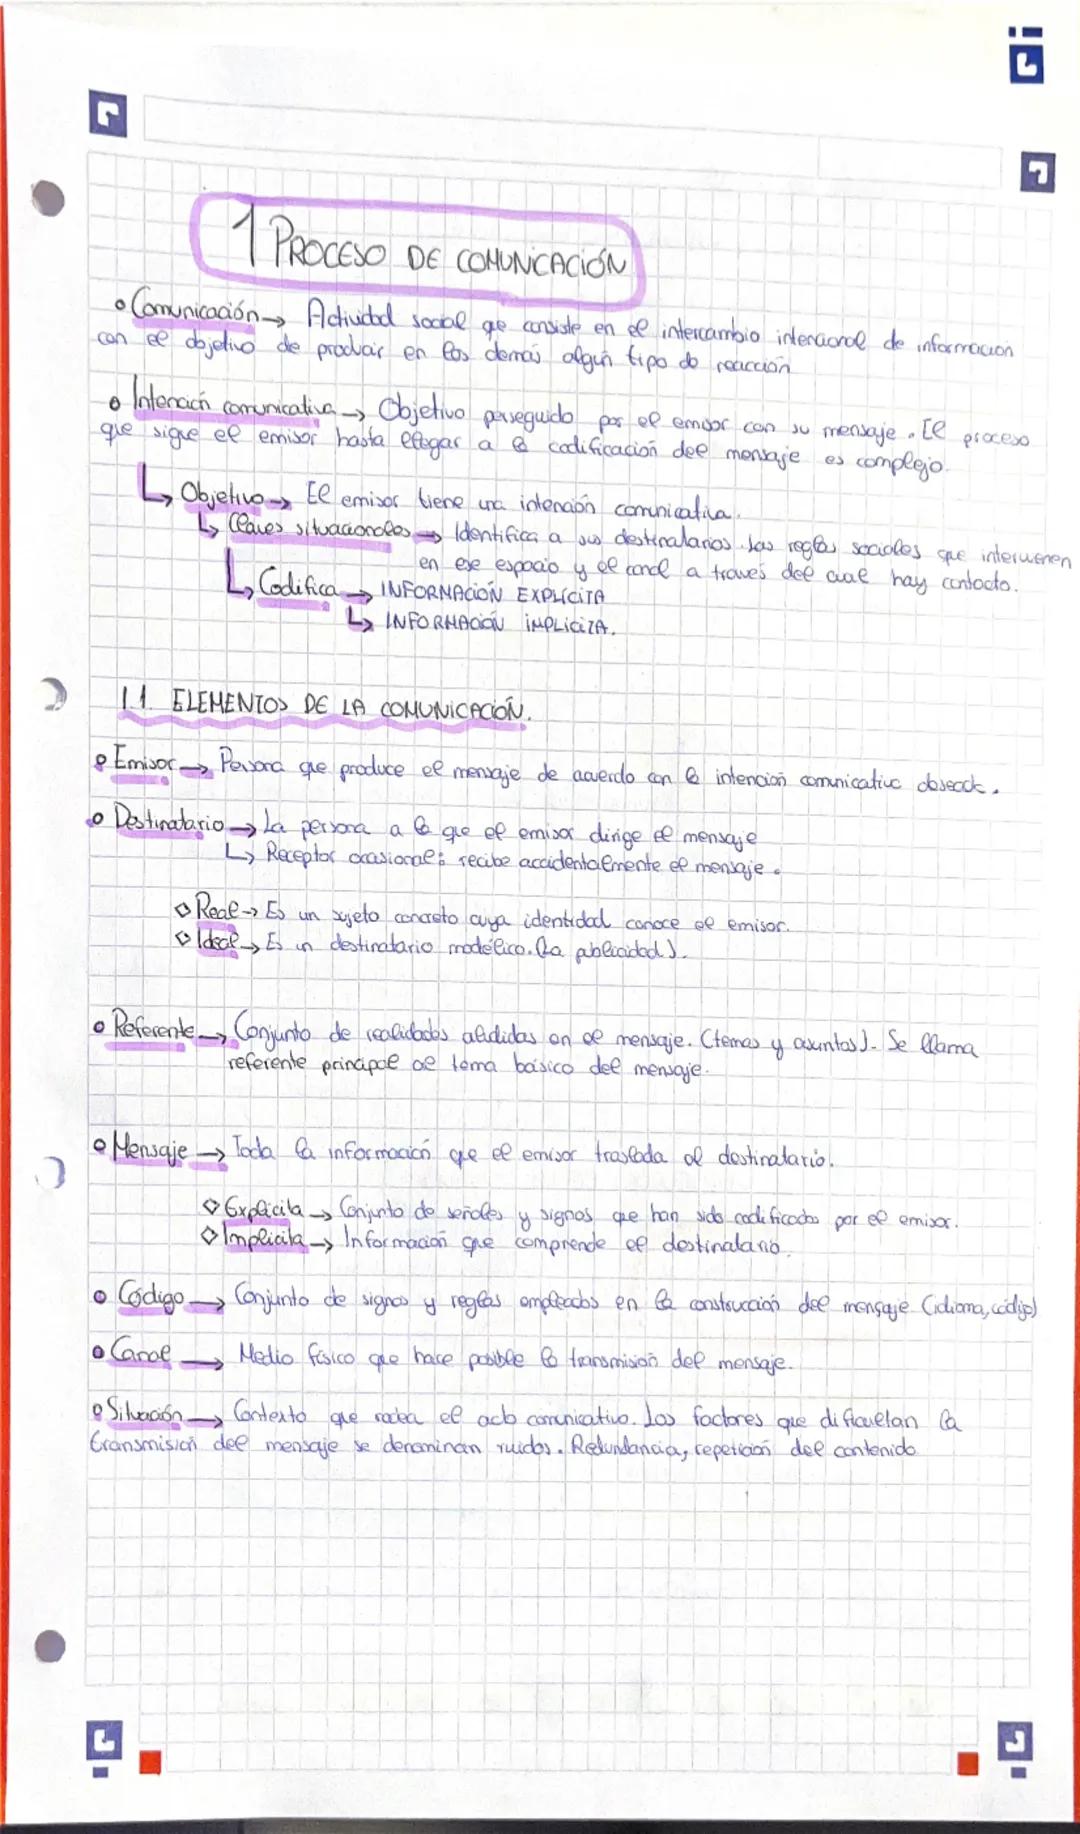 1 PROCESO DE COMUNICACIÓN
Comunicación → Actividad social que consiste en el intercambio intencional de información
con el objetivo de producir en los demás algún tipo de reacción
Intención comunicativa → Objetivo perseguido por el emisor con su mensaje. El proceso
que sigue el emisor hasta llegar a la codificación del mensaje es complejo.
↳ Objetivo → El emisor tiene una intención comunicativa.
↳ Claves situacionales → Identifica a sus destinatarios. Las reglas sociales que intervienen
en ese espacio y el canal a través del cual hay contacto.
↳ Codifica → INFORMACIÓN EXPLÍCITA
↳ INFORMACIÓN IMPLICITA.
1.1. ELEMENTOS DE LA COMUNICACIÓN.
Emisor → Persona que produce el mensaje de acuerdo con la intención comunicativa deseada.
Destinatario → La persona a la que el emisor dirige el mensaje
↳ Receptor ocasional: recibe accidentalmente el mensaje.
◇ Real → Es un sujeto concreto cuya identidad conoce el emisor.
◇ Ideal → Es un destinatario modélico. (La publicidad).
Referente → Conjunto de realidades aludidas en el mensaje. (temas y asuntos). Se llama
referente principal al tema básico del mensaje.
Mensaje → Toda la información que el emisor traslada al destinatario.
◇ Explicita → Conjunto de señales y signos que han sido codificados por el emisor.
◇ Implicita → Información que comprende el destinatario.
Código → Conjunto de signos y reglas empleados en la construcción del mensaje (idioma, código)
Canal → Medio físico que hace posible la transmisión del mensaje.
Situación → Contexto que rodea el acto comunicativo. Los factores que dificultan la
transmisión del mensaje se denominan ruidos. Redundancia, repetición del contenido